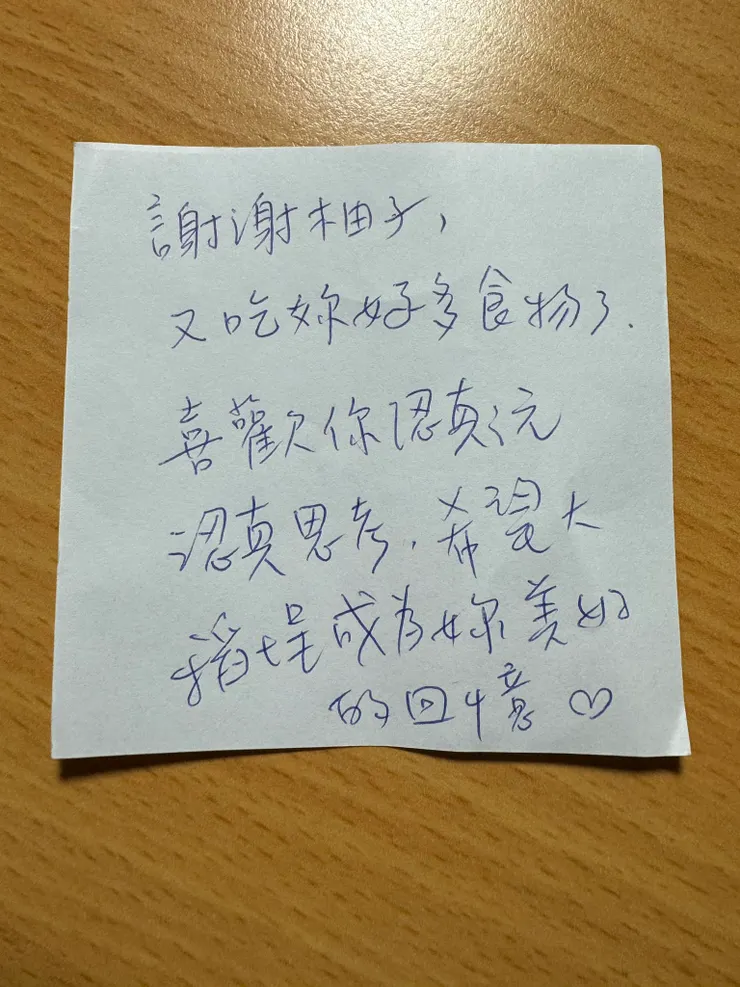 謝謝柚子,
又吃妳好多食物了.
喜歡你認真玩
認真思考,希望大
稻埕成為妳美好
的回憶♡